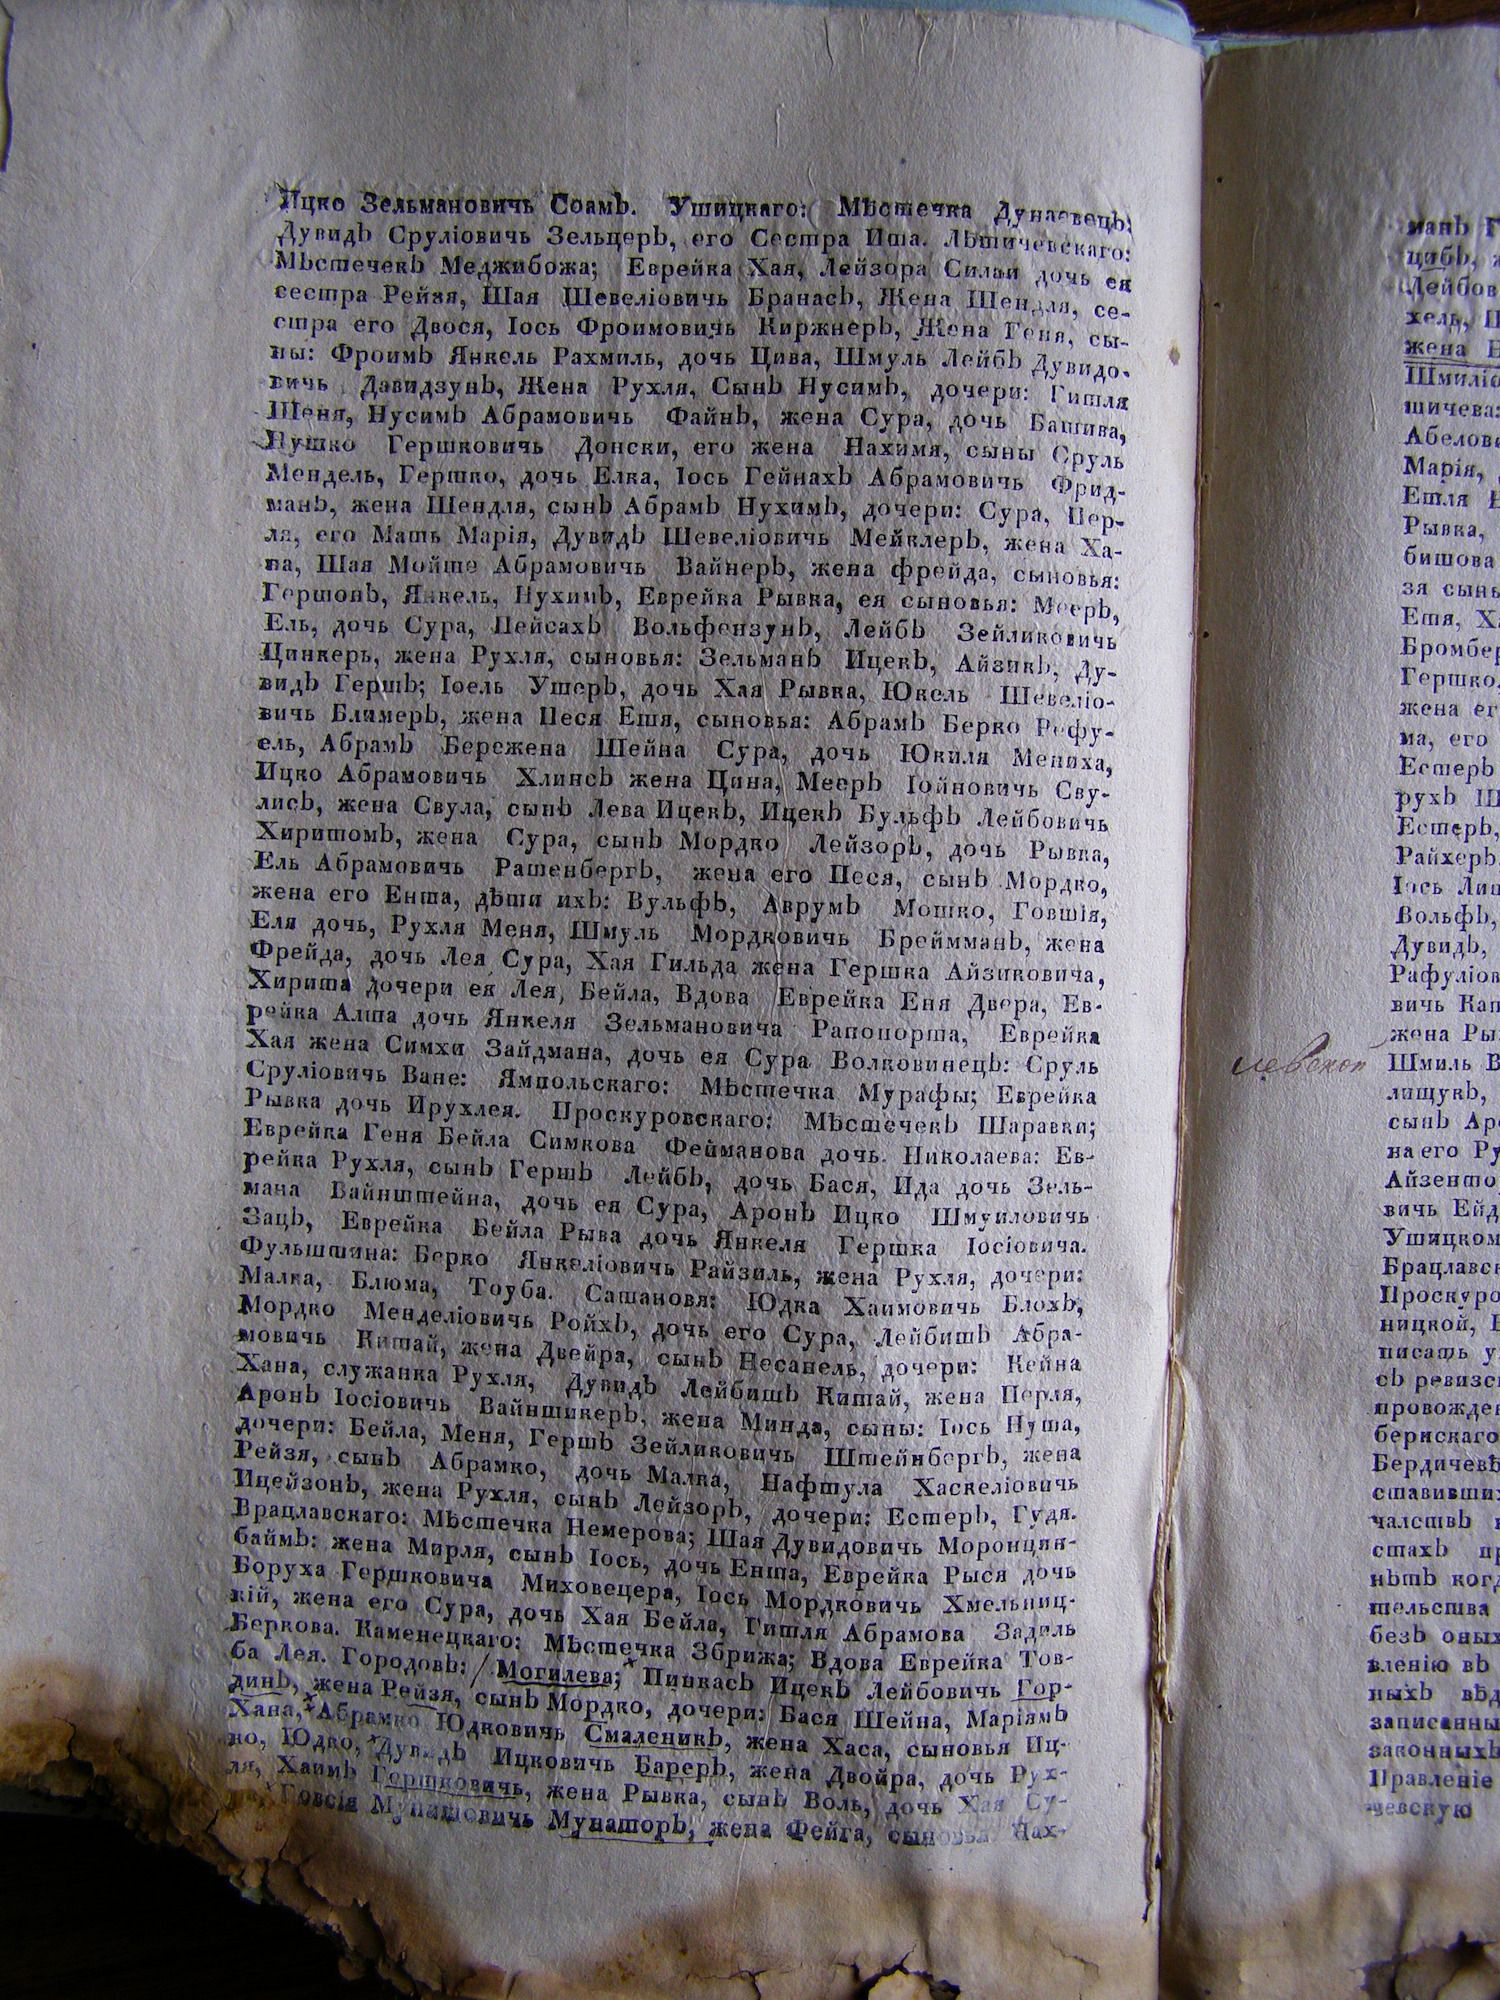 Ицко Зельмановичь Соамъ. Ушицкаго: Мѣстечка Дунаевецъ:
Дувидъ Сруліовичь Зельцеръ, его Сестра Ита. Лѣтичевскаго:
Мѣстечекъ Меджибожа; Еврейка Хая, Лейзора Силки дочь ея
сестра Рейзя, Шая Шевеліовичь Бранасъ, Жена Шендля, се-
стра его Двося, Іось Фроимовичь Киржнеръ, Жена Геня, сы-
ны: Фроимъ Янкель Рахмиль, дочь Цива, Шмуль Лейбъ Дувидо-
вичь Давидзунъ, Жена Рухля, Сынъ Нусимъ, дочери: Гитля
Шеня, Нусимъ Абрамовичь Файнъ, жена Сура, дочь Башива,
Нушко Гершковичь Донски, его жена Нахимя, сыны Сруль
Мендель, Гершко, дочь Елка, Іось Гейнахъ Абрамовичь Фрид-
манъ, жена Шендля, сынъ Абрамъ Нухимъ, дочери: Сура, Пер-
ля, его Мать Марія, Дувидъ Шевеліовичь Мейклеръ, жена Ха-
на, Шая Мойше Абрамовичь Вайнеръ, жена фрейда, сыновья:
Гершонъ, Янкель, Нухимъ, Еврейка Рывка, ея сыновья: Мееръ,
Ель, дочь Сура, Пейсахъ Вольфензунъ, Лейбъ Зейликовичь
Цинкеръ, жена Рухля, сыновья: Зельманъ Ицекъ, Айзикъ, Ду-
видъ Гершъ; Іоель Ушеръ, дочь Хая Рывка, Юкель Шевеліо-
вичь Блимеръ, жена Песя Етя, сыновья: Абрамъ Берко Рефу-
ель, Абрамъ Бережена Шейна Сура, дочь Юкиля Мениха,
Ицко Абрамовичь Хлинсъ жена Цина, Мееръ Іойновичь Сву-
лисъ, жена Свула, сынъ Лева Ицекъ, Ицекъ Бульфъ Лейбовичь
Хиритомъ, жена Сура, сынъ Мордко Лейзоръ, дочь Рывка,
Ель Абрамовичь Рашенбергъ, жена его Песя, сынъ Мордко,
жена его Ента, дѣти ихъ: Вульфъ, Аврумъ Мошко, Говшія,
Еля дочь, Рухля Меня, Шмуль Мордковичь Брейманнъ, жена
Фрейда, дочь Лея Сура, Хая Гильда жена Гершка Айзиковича,
Хирита дочери ея Лея, Бейла, Вдова Еврейка Еня Двера, Ев-
рейка Алта дочь Янкеля Зельмановича Рапопорта, Еврейка
Хая жена Симхи Зайдмана, дочь ея Сура Волковинецъ: Сруль
Сруліовичь Ване: Ямпольскаго: Мѣстечка Мурафы; Еврейка
Рывка дочь Ирухлея. Проскуровскаго: Мѣстечекъ Шаравки;
Еврейка Геня Бейла Симкова Фейманова дочь. Николаева: Ев-
рейка Рухля, сынъ Гершъ Лейбъ, дочь Бася, Ида дочь Зель-
мана Вайнштейна, дочь ея Сура, Аронъ Ицко Шмуиловичь
Зацъ, Еврейка Бейла Рыва дочь Янкеля Гершка Іосіовича.
Фульштина: Берко Янкеліовичь Райзиль, жена Рухля, дочери:
Малка, Блюма, Тоуба. Сатановя: Юдка Хаимовичь Блохъ,
Мордко Менделіовичь Ройхъ, дочь его Сура, Лейбишъ Абра-
мовичь Китай, жена Двейра, сынъ Несанель, дочери: Кейна
Хана, служанка Рухля, Дувидъ Лейбишъ Китай, жена Перля,
Аронъ Іосіовичь Вайншикеръ, жена Минда, сыны: Іось Нута,
дочери: Бейла, Меня, Гершъ Зейликовичь Штейнбергъ, жена
Рейзя, сынъ Абрамко, дочь Малка, Нафтула Хаскеліовичь
Ицейзонъ, жена Рухля, сынъ Лейзоръ, дочери: Естеръ, Гудя.
Врацлавскаго: Мѣстечка Немерова; Шая Дувидовичь Моронцин-
баймъ: жена Мирля, сынъ Іось, дочь Ента, Еврейка Рыся дочь
Боруха Гершковича Миховецера, Іось Мордковичь Хмельниц-
кій, жена его Сура, дочь Хая Бейла, Гитля Абрамова Задель
Беркова. Каменецкаго: Мѣстечка Збрижа; Вдова Еврейка Тов-
ба Лея. Городовъ: Могилева; Пинкасъ Ицекъ Лейбовичь Гор-
динъ, жена Рейзя, сынъ Мордко, дочери: Бася Шейна, Маріямъ
Хана, Абрамко Юдковичь Смаленикъ, жена Хаса, сыновья Иц-
ко, Юдко, Дувидъ Ицковичь Бареръ, жена Двойра, дочь Рух-
ля, Хаимъ Гершковичь, жена Рывка, сынъ Воль, дочь Хая Су-
Говсія Мунишовичь Мунаторъ, жена Фейга, сыновья Нах-
манъ
цибъ,
Лейбов
хель,
жена
Шмиліо
шичева:
Абелов
Марія,
Етля
Рывка,
бишова
зя сынъ
Етя,
Бромбер
Гершко,
жена ег
ма, его
Естеръ
рухъ
Естеръ,
Райхеръ
Іось Лип
Вольфъ,
Дувидъ,
Рафуліов
вичь Кап
жена Ры
Шмиль В
лищукъ,
сынъ Ар
на его Ру
Айзенто
вичь Ейд
Ушицком
Брацлавс
Проскуро
ницкой,
писать у
съ ревизс
провожден
берискаго
Бердичевѣ
ставивших
чалствъ
стахъ пр
нѣтъ когд
тельства
безъ оных
вленію въ
ныхъ вѣд
записанны
законныхъ
Правленіе
чевскую